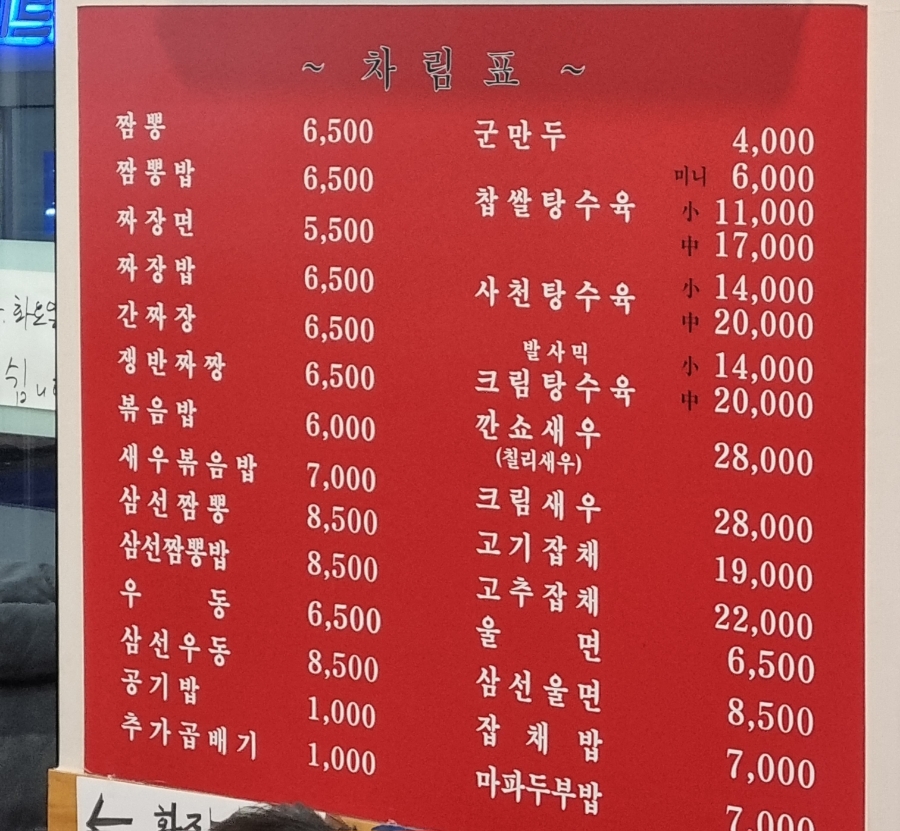 ~ 차림표 ~
짬뽕 6,500
짬뽕밥 6,500
짜장면 5,500
짜장밥 6,500
간짜장 6,500
쟁반짜짱 6,500
볶음밥 6,000
새우볶음밥 7,000
삼선짬뽕 8,500
삼선짬뽕밥 8,500
우동 6,500
삼선우동 8,500
공기밥 1,000
추가곱배기 1,000
군만두 4,000
미니 6,000
찹쌀탕수육 小 11,000
中 17,000
사천탕수육 小 14,000
中 20,000
발사믹 小 14,000
크림탕수육 中 20,000
깐쇼새우
(칠리새우) 28,000
크림새우 28,000
고기잡채 19,000
고추잡채 22,000
울면 6,500
삼선울면 8,500
잡채밥 7,000
마파두부밥 7,000
화요일
쉽니
←